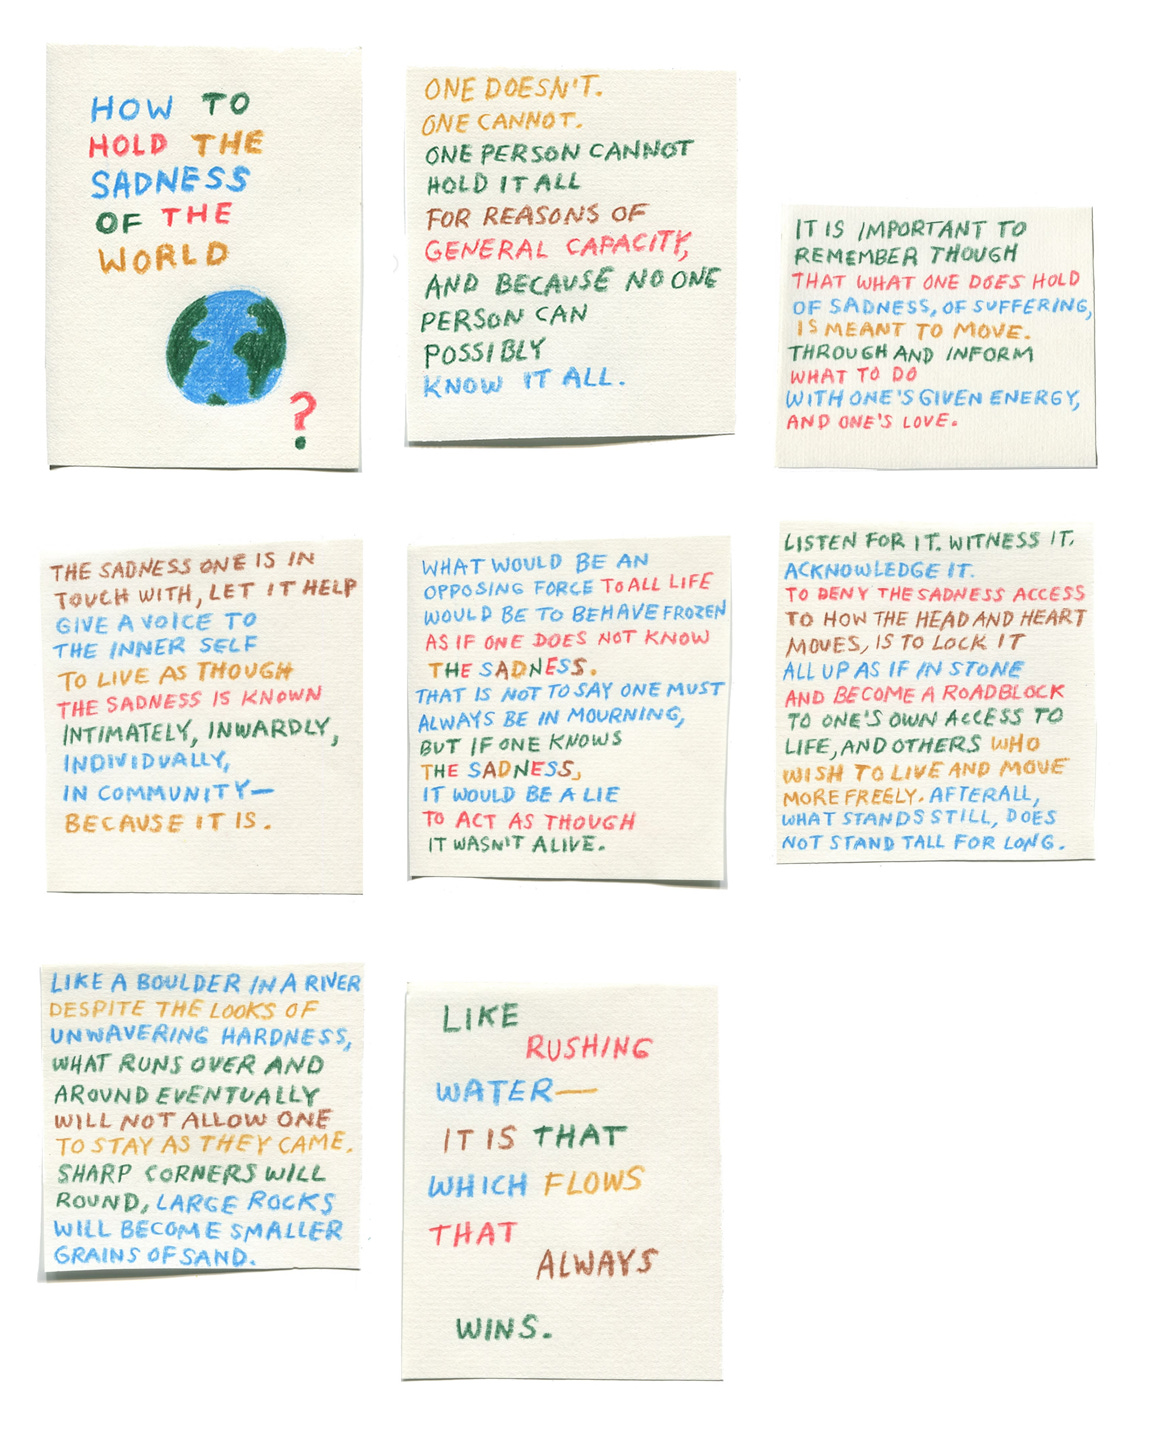 HOW TO
HOLD THE
SADNESS
OF THE
WORLD
?
ONE DOESN'T.
ONE CANNOT.
ONE PERSON CANNOT
HOLD IT ALL
FOR REASONS OF
GENERAL CAPACITY,
AND BECAUSE NO ONE
PERSON CAN
POSSIBLY
KNOW IT ALL.
IT IS IMPORTANT TO
REMEMBER THOUGH
THAT WHAT ONE DOES HOLD
OF SADNESS, OF SUFFERING,
IS MEANT TO MOVE.
THROUGH AND INFORM
WHAT TO DO
WITH ONE'S GIVEN ENERGY,
AND ONE'S LOVE.
THE SADNESS ONE IS IN
TOUCH WITH, LET IT HELP
GIVE A VOICE TO
THE INNER SELF
TO LIVE AS THOUGH
THE SADNESS IS KNOWN
INTIMATELY, INWARDLY,
INDIVIDUALLY,
IN COMMUNITY—
BECAUSE IT IS.
WHAT WOULD BE AN
OPPOSING FORCE TO ALL LIFE
WOULD BE TO BEHAVE FROZEN
AS IF ONE DOES NOT KNOW
THE SADNESS.
THAT IS NOT TO SAY ONE MUST
ALWAYS BE IN MOURNING,
BUT IF ONE KNOWS
THE SADNESS,
IT WOULD BE A LIE
TO ACT AS THOUGH
IT WASN'T ALIVE.
LISTEN FOR IT. WITNESS IT.
ACKNOWLEDGE IT.
TO DENY THE SADNESS ACCESS
TO HOW THE HEAD AND HEART
MOVES, IS TO LOCK IT
ALL UP AS IF IN STONE
AND BECOME A ROADBLOCK
TO ONE'S OWN ACCESS TO
LIFE, AND OTHERS WHO
WISH TO LIVE AND MOVE
MORE FREELY. AFTERALL,
WHAT STANDS STILL, DOES
NOT STAND TALL FOR LONG.
LIKE A BOULDER IN A RIVER
DESPITE THE LOOKS OF
UNWAVERING HARDNESS,
WHAT RUNS OVER AND
AROUND EVENTUALLY
WILL NOT ALLOW ONE
TO STAY AS THEY CAME.
SHARP CORNERS WILL
ROUND, LARGE ROCKS
WILL BECOME SMALLER
GRAINS OF SAND.
LIKE
RUSHING
WATER—
IT IS THAT
WHICH FLOWS
THAT
ALWAYS
WINS.